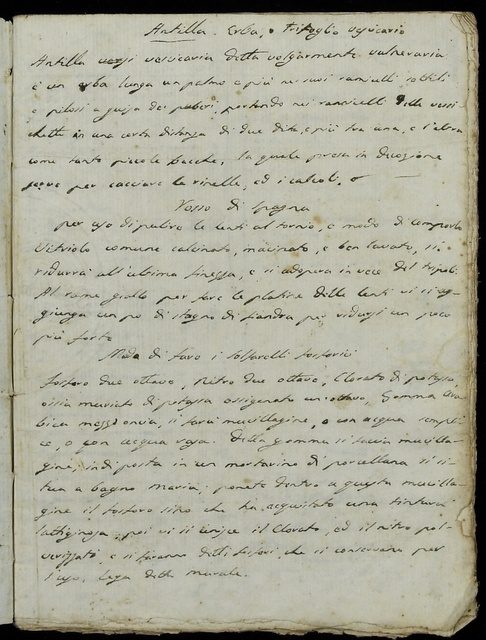 Antilla Erba, o trifoglio vesicario
Antilla vesicaria detta volgarmente vulneraria
è un erba lunga un palmo e più ne suoi ramicelli sottili
e pilosi a guisa de puberi, portando nei ramicelli delle vessi
chette in una certa distanza di due dita, e più tra una, e l'altra
come tante piccole bacche, la quale presa in decozione
serve per cacciare le rinelle, ed i calcoli.
Rosso di Spagna
per uso di pulire le lenti al tornio, e modo di comporlo
Vitriolo comune calcinato, macinato, e ben lavato, si
ridurrà all'ultima finezza, e si adopera in vece del tripoli.
Al rame giallo per fare le platine delle lenti vi si ag-
giunga un po di stagno di fiandra per ridursi un poco
più forte
Modo di fare i solfarelli fosforici
fosforo due ottave, Nitro due ottave, Clorato di potassa,
ossia muriato di potassa ossigenato un ottavo, Gomma Ara
bica mezz'oncia, si farà mucillagine, o con acqua sempli-
ce, o con acqua rosa. Della gomma si faccia mucilla-
gine, indi posta in un mortarino di porcellana si si-
tua a bagno maria; ponete dentro a questa mucilla-
gine il fosforo sino che ha acquistato una tintura
lattiginosa, poi vi si unisce il Clorato, ed il nitro pol-
verizzato, e si faranno detti fosfori che si conservano per
l'uso,